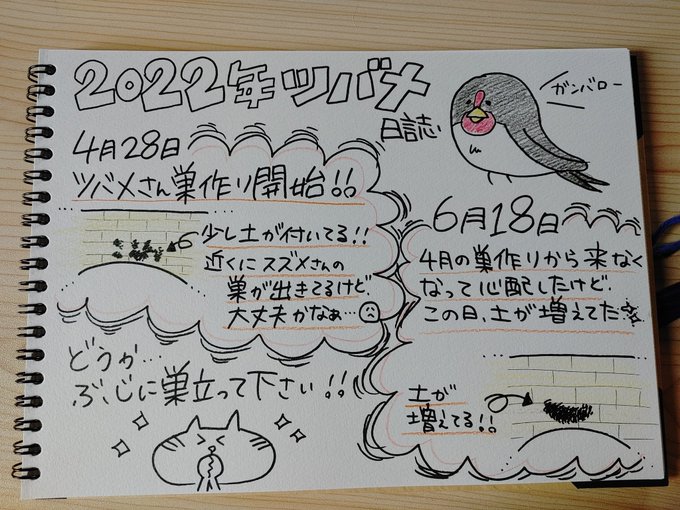 2022年ツバメ
日誌
ガンバロー
4月28日
ツバメさん巣作り開始!!
少し土が付いてる!!
近くにスズメさんの
巣が出きてるけど、
大丈夫かなぁ…
どうか…
ぶじに巣立って下さい!!
6月18日
4月の巣作りから来なく
なって心配したけど、
この日、土が増えてた
土が
増えてる!!